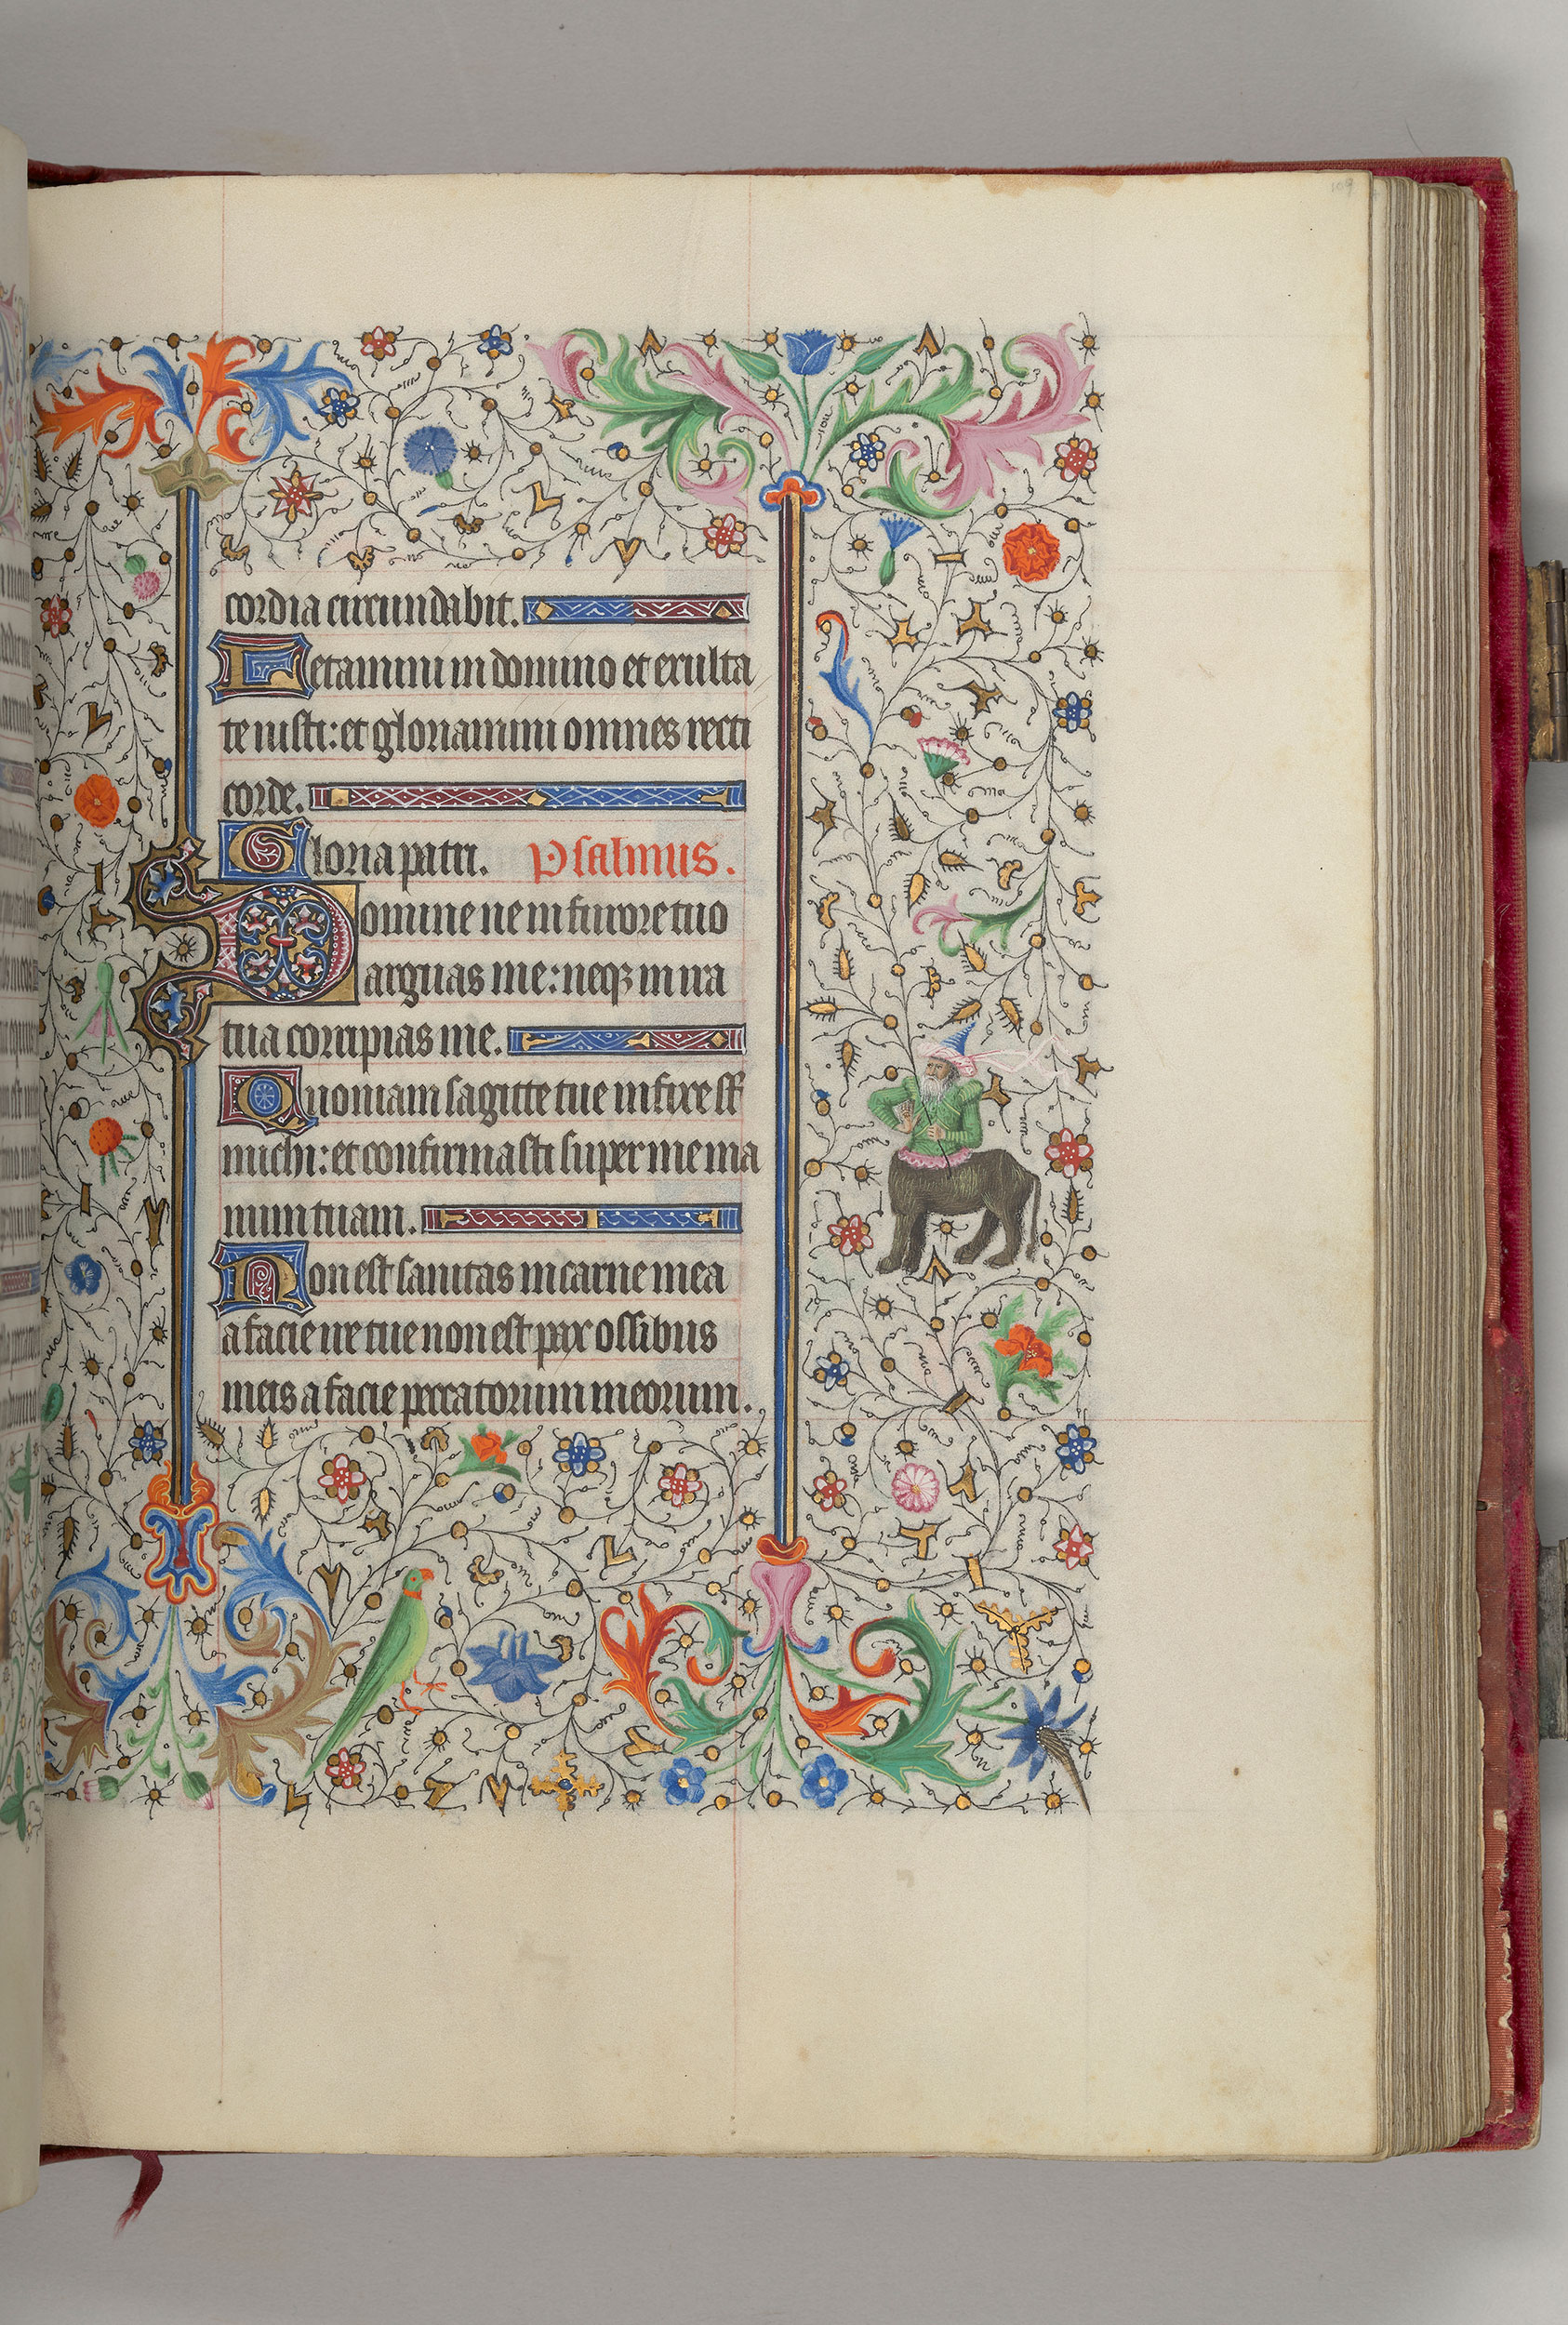 109
cordia circundabit.
Letamini in domino et exulta
te iusti: et gloriamini omnes recti
corde.
Gloria patri. Psalmus.
Domine ne in furore tuo
arguas me: neq3 in ira
tua corripias me.
Quoniam sagitte tue infixe sſt
michi: et confirmasti super me ma
num tuam.
Non est sanitas in carne mea
a facie ire tue non est pax ossibus
meis a facie peccatorum meorum.